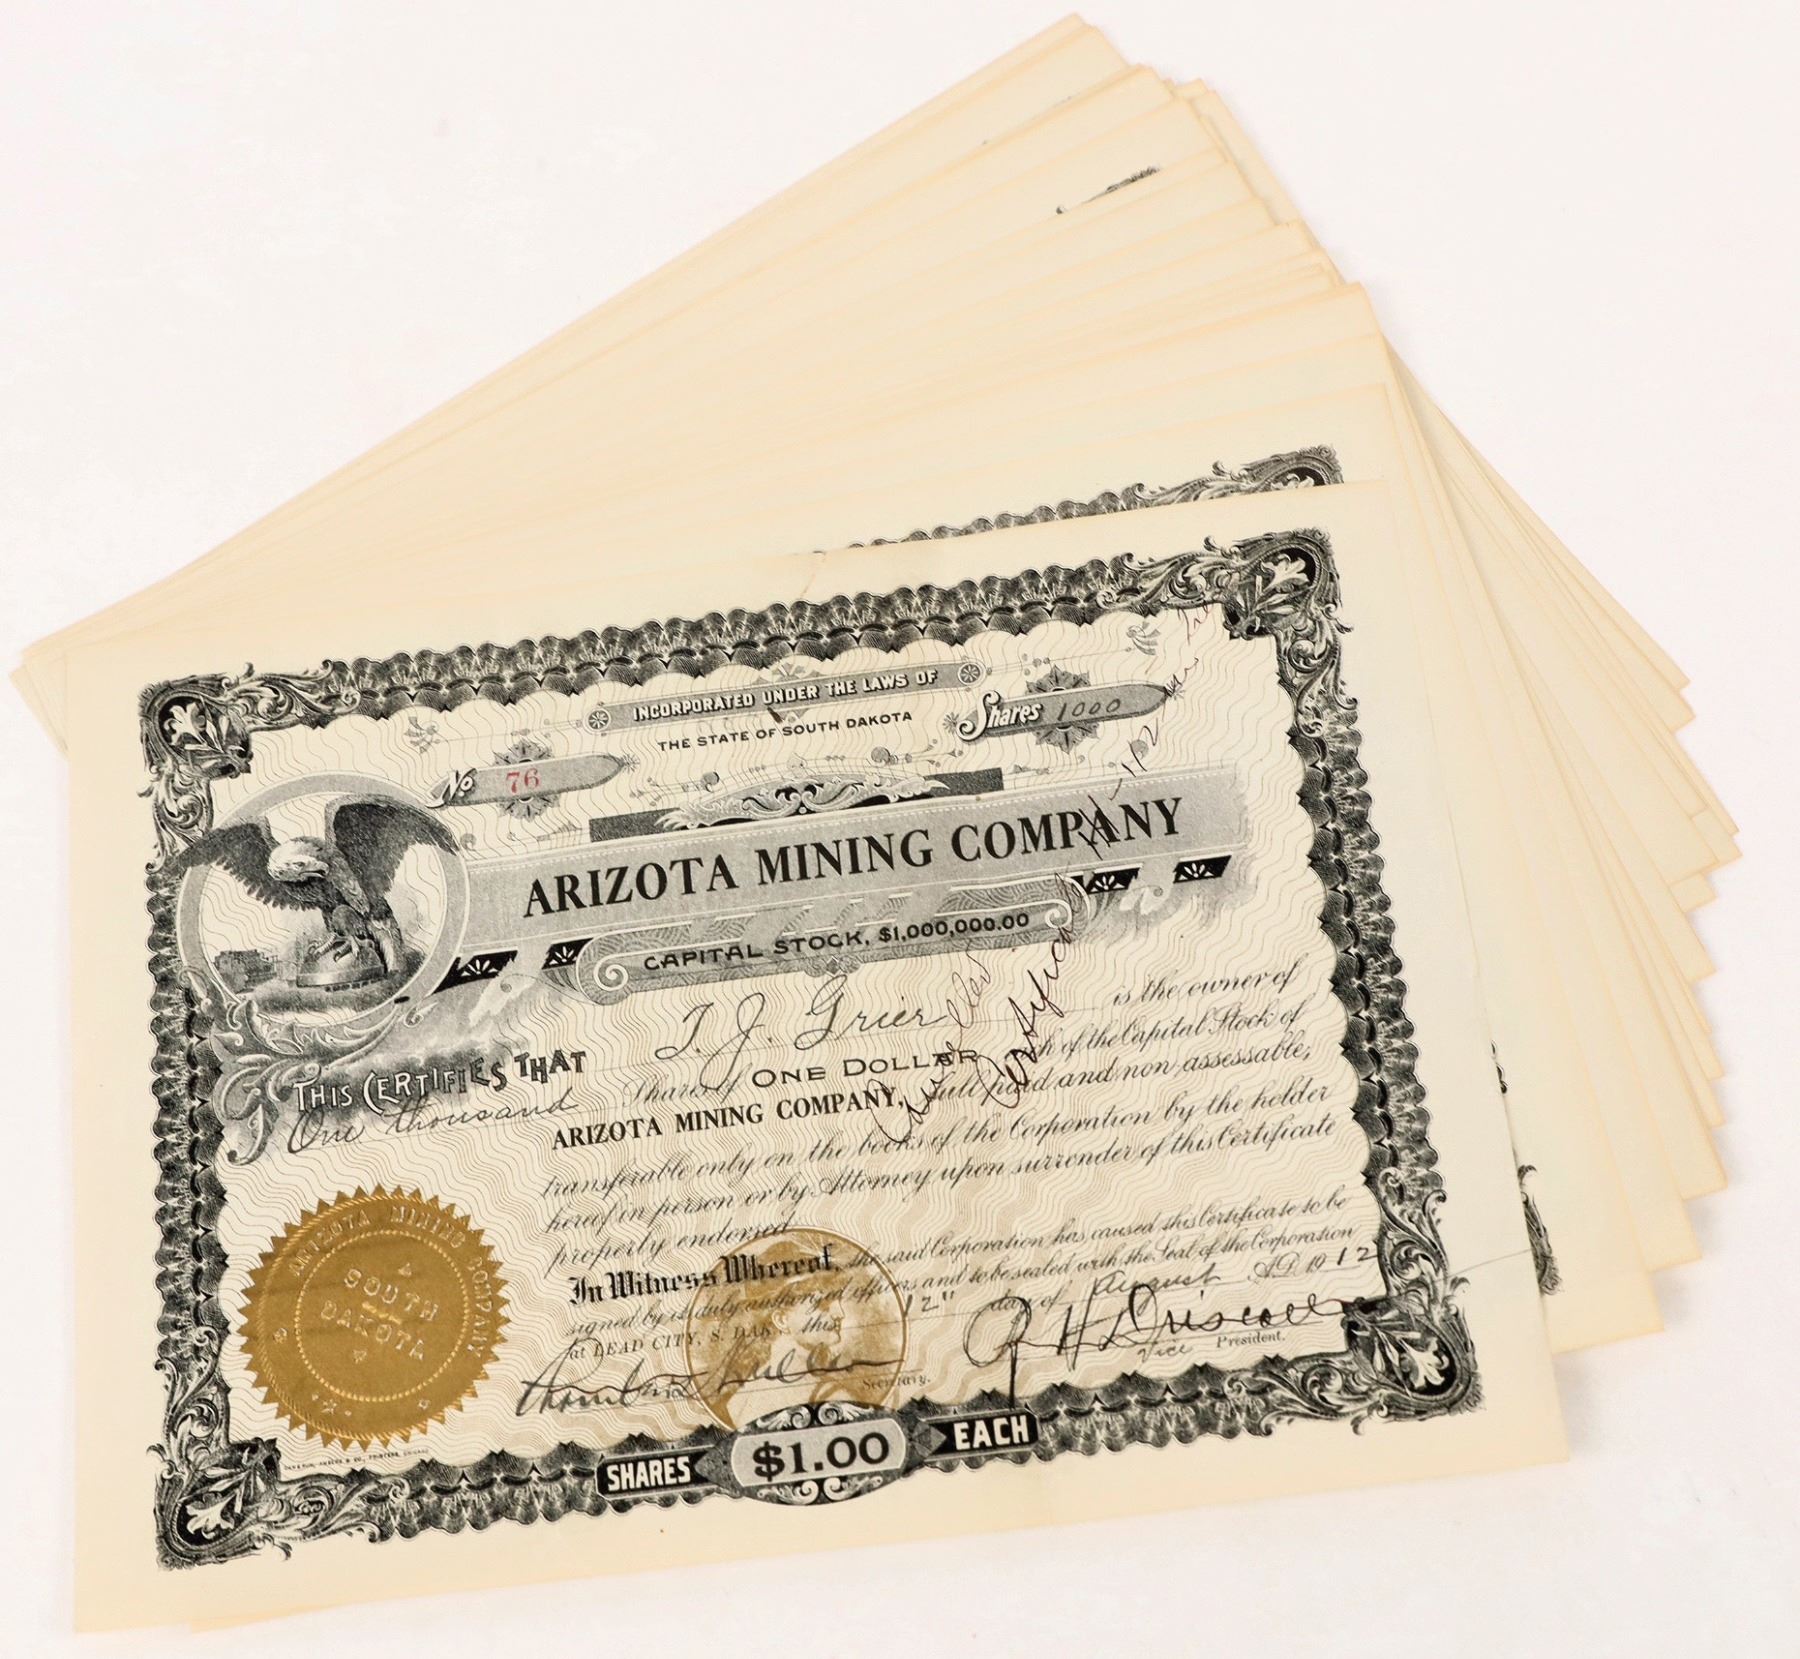 INCORPORATED UNDER THE LAWS OF
THE STATE OF SOUTH DAKOTA
No 76
Shares 1000
ARIZOTA MINING COMPANY
CAPITAL STOCK, $1,000,000.00
THIS CERTIFIES THAT T. J. Grier is the owner of
One thousand Shares of ONE DOLLAR each of the Capital Stock of
ARIZOTA MINING COMPANY, full paid and non assessable,
transferable only on the books of the Corporation by the holder
hereof in person or by Attorney upon surrender of this Certificate
properly endorsed
In Witness Whereof, the said Corporation has caused this Certificate to be
signed by its duly authorized officers and to be sealed with the Seal of the Corporation
at LEAD CITY, S. DAK. this 12" day of August A.D. 1912
Secretary.
Vice President.
Cancelled
Certificate
ARIZOTA MINING COMPANY
SOUTH
DAKOTA
SHARES $1.00 EACH